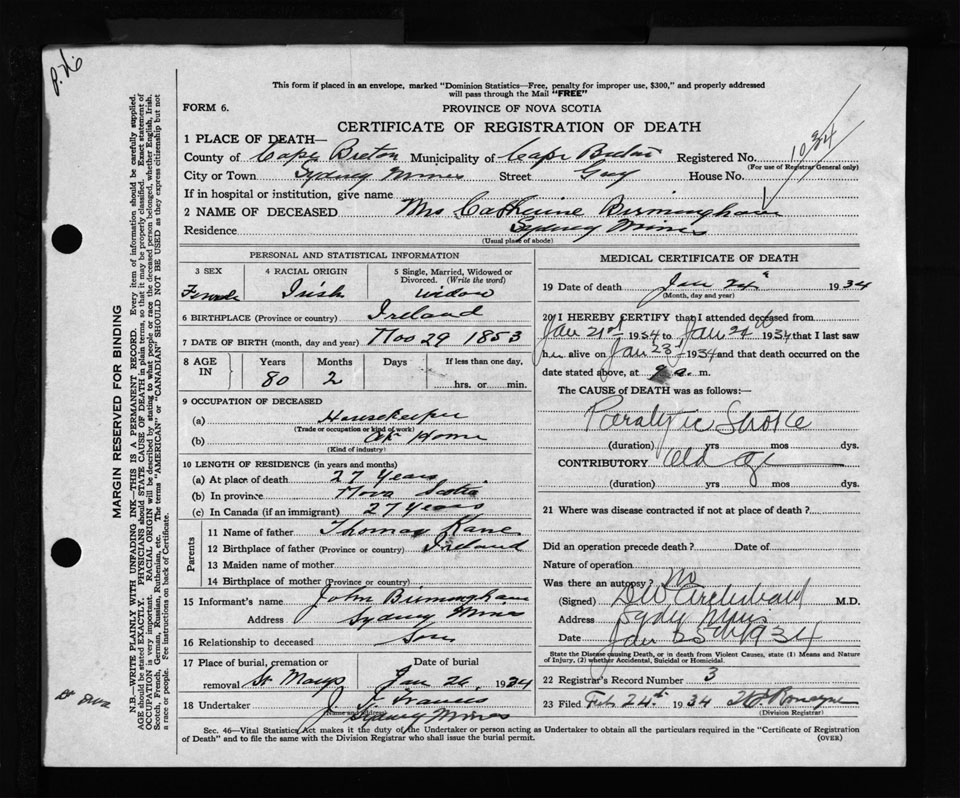 This form if placed in an envelope, marked "Dominion Statistics—Free, penalty for improper use, $300," and properly addressed
will pass through the Mail "FREE"
FORM 6.
PROVINCE OF NOVA SCOTIA
CERTIFICATE OF REGISTRATION OF DEATH
1 PLACE OF DEATH—
County of Cape Breton Municipality of Cape Breton Registered No.
(For use of Registrar General only)
City or Town Sydney Mines Street Guy House No.
If in hospital or institution, give name
2 NAME OF DECEASED Mrs Catherine Birmingham
Residence Sydney Mines
(Usual place of abode)
PERSONAL AND STATISTICAL INFORMATION
3 SEX 4 RACIAL ORIGIN 5 Single, Married, Widowed or Divorced. (Write the word)
Female Irish widow
6 BIRTHPLACE (Province or country) Ireland
7 DATE OF BIRTH (month, day and year) Nov 29 1853
8 AGE IN Years Months Days If less than one day,
80 2 hrs. or min.
9 OCCUPATION OF DECEASED
(a) Housekeeper
(Trade or occupation or kind of work)
(b) At Home
(Kind of industry)
10 LENGTH OF RESIDENCE (in years and months)
(a) At place of death 27 Years
(b) In province Nova Scotia
(c) In Canada (if an immigrant) 27 Years
Parents
11 Name of father Thomas Kane
12 Birthplace of father (Province or country) Ireland
13 Maiden name of mother
14 Birthplace of mother (Province or country)
15 Informant's name John Birmingham
Address Sydney Mines
16 Relationship to deceased Son
17 Place of burial, cremation or removal St. Marys Date of burial Jan 26 1934
18 Undertaker J Francis
(Name and address) Sydney Mines
MEDICAL CERTIFICATE OF DEATH
19 Date of death Jan 24 1934
(Month, day and year)
20 I HEREBY CERTIFY that I attended deceased from
Jan 21st 1934 to Jan 24th 1934 that I last saw
her alive on Jan 23 1934 and that death occurred on the
date stated above, at 9 a. m.
The CAUSE OF DEATH was as follows:—
Paralytic Stroke
(duration) yrs mos dys.
CONTRIBUTORY Old Age
(duration) yrs mos dys.
21 Where was disease contracted if not at place of death?
Did an operation precede death? Date of
Nature of operation
Was there an autopsy? No
(Signed) DW Archibald M.D.
Address Sydney Mines
Date Jan 25th 1934
State the Disease causing Death, or in death from Violent Causes, state (1) Means and Nature
of Injury, (2) whether Accidental, Suicidal or Homicidal.
22 Registrar's Record Number 3
23 Filed Feb 24th 1934
(Division Registrar)
Sec. 46—Vital Statistics Act makes it the duty of the Undertaker or person acting as Undertaker to obtain all the particulars required in the "Certificate of Registration
of Death" and to file the same with the Division Registrar who shall issue the burial permit.
(OVER)
MARGIN RESERVED FOR BINDING
N.B. WRITE PLAINLY WITH UNFADING INK—THIS IS A PERMANENT RECORD. Every item of information should be carefully supplied.
AGE should be stated EXACTLY. PHYSICIANS should STATE CAUSE OF DEATH in plain terms, so that it may be properly classified. Exact statement of
OCCUPATION is very important. RACIAL ORIGIN will be described by stating to what people or race the deceased person belonged, whether English, Irish,
Scotch, French, German, Russian, Ruthenian, etc. The terms "AMERICAN" or "CANADIAN" SHOULD NOT BE USED as they express citizenship but not
a race or people. See instructions on back of Certificate.